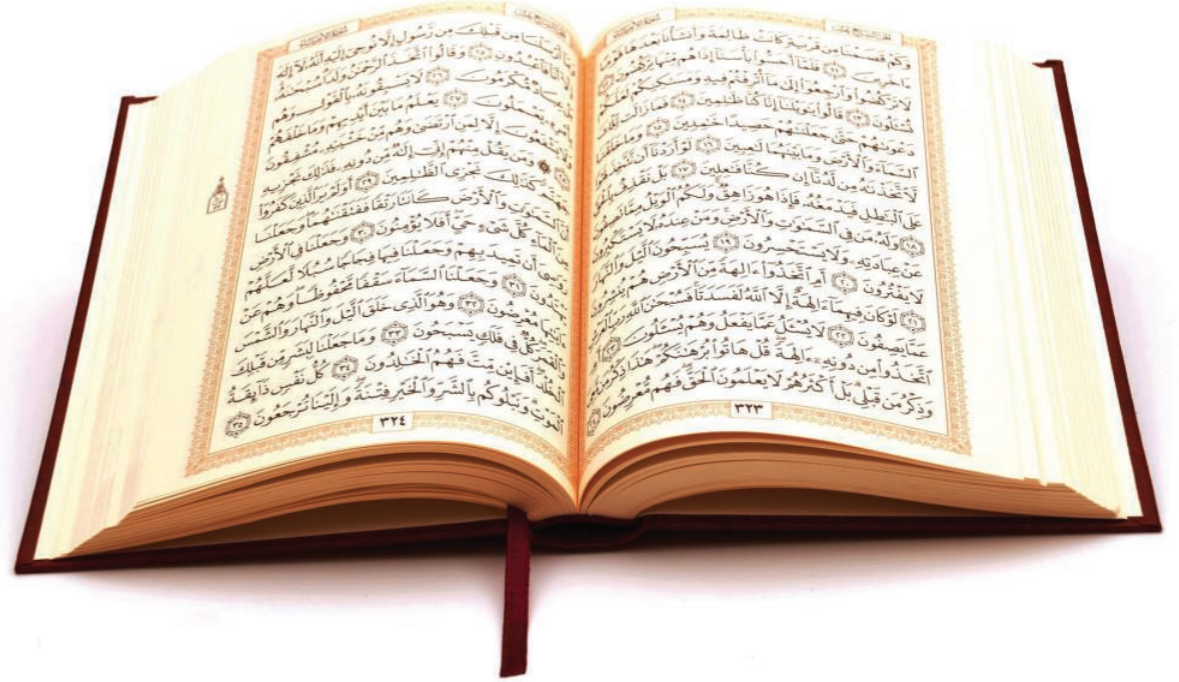 وَكَمْ قَصَمْنَا مِن قَرْيَةٍ كَانَتْ ظَالِمَةً وَأَنشَأْنَا بَعْدَهَا قَوْمًا
ءَاخَرِينَ ١١ فَلَمَّآ أَحَسُّوا۟ بَأْسَنَآ إِذَا هُم مِّنْهَا يَرْكُضُونَ ١٢
لَا تَرْكُضُوا۟ وَٱرْجِعُوٓا۟ إِلَىٰ مَآ أُتْرِفْتُمْ فِيهِ وَمَسَٰكِنِكُمْ لَعَلَّكُمْ
تُسْـَٔلُونَ ١٣ قَالُوا۟ يَٰوَيْلَنَآ إِنَّا كُنَّا ظَٰلِمِينَ ١٤ فَمَا زَالَت تِّلْكَ
دَعْوَىٰهُمْ حَتَّىٰ جَعَلْنَٰهُمْ حَصِيدًا خَٰمِدِينَ ١٥ وَمَا خَلَقْنَا
ٱلسَّمَآءَ وَٱلْأَرْضَ وَمَا بَيْنَهُمَا لَٰعِبِينَ ١٦ لَوْ أَرَدْنَآ أَن نَّتَّخِذَ
لَّٱتَّخَذْنَٰهُ مِن لَّدُنَّآ إِن كُنَّا فَٰعِلِينَ ١٧ بَلْ نَقْذِفُ بِٱلْحَقِّ
عَلَى ٱلْبَٰطِلِ فَيَدْمَغُهُۥ فَإِذَا هُوَ زَاهِقٌ وَلَكُمُ ٱلْوَيْلُ مِمَّا تَصِفُونَ
١٨ وَلَهُۥ مَن فِى ٱلسَّمَٰوَٰتِ وَٱلْأَرْضِ وَمَنْ عِندَهُۥ لَا يَسْتَكْبِرُونَ
عَنْ عِبَادَتِهِۦ وَلَا يَسْتَحْسِرُونَ ١٩ يُسَبِّحُونَ ٱلَّيْلَ وَٱلنَّهَارَ
لَا يَفْتُرُونَ ٢٠ أَمِ ٱتَّخَذُوٓا۟ ءَالِهَةً مِّنَ ٱلْأَرْضِ هُمْ يُنشِرُونَ
٢١ لَوْ كَانَ فِيهِمَآ ءَالِهَةٌ إِلَّا ٱللَّهُ لَفَسَدَتَا فَسُبْحَٰنَ ٱللَّهِ رَبِّ ٱلْعَرْشِ
عَمَّا يَصِفُونَ ٢٢ لَا يُسْـَٔلُ عَمَّا يَفْعَلُ وَهُمْ يُسْـَٔلُونَ ٢٣ أَمِ
ٱتَّخَذُوا۟ مِن دُونِهِۦٓ ءَالِهَةً قُلْ هَاتُوا۟ بُرْهَٰنَكُمْ هَٰذَا ذِكْرُ مَن مَّعِىَ
وَذِكْرُ مَن قَبْلِى بَلْ أَكْثَرُهُمْ لَا يَعْلَمُونَ ٱلْحَقَّ فَهُم مُّعْرِضُونَ ٢٤
٣٢٣
وَمَآ أَرْسَلْنَا مِن قَبْلِكَ مِن رَّسُولٍ إِلَّا نُوحِىٓ إِلَيْهِ أَنَّهُۥ لَآ إِلَٰهَ
إِلَّآ أَنَا۠ فَٱعْبُدُونِ ٢٥ وَقَالُوا۟ ٱتَّخَذَ ٱلرَّحْمَٰنُ وَلَدًا سُبْحَٰنَهُۥ
بَلْ عِبَادٌ مُّكْرَمُونَ ٢٦ لَا يَسْبِقُونَهُۥ بِٱلْقَوْلِ وَهُم
بِأَمْرِهِۦ يَعْمَلُونَ ٢٧ يَعْلَمُ مَا بَيْنَ أَيْدِيهِمْ وَمَا خَلْفَهُمْ
وَلَا يَشْفَعُونَ إِلَّا لِمَنِ ٱرْتَضَىٰ وَهُم مِّنْ خَشْيَتِهِۦ مُشْفِقُونَ
٢٨ وَمَن يَقُلْ مِنْهُمْ إِنِّىٓ إِلَٰهٌ مِّن دُونِهِۦ فَذَٰلِكَ نَجْزِيهِ
جَهَنَّمَ كَذَٰلِكَ نَجْزِى ٱلظَّٰلِمِينَ ٢٩ أَوَلَمْ يَرَ ٱلَّذِينَ كَفَرُوٓا۟
أَنَّ ٱلسَّمَٰوَٰتِ وَٱلْأَرْضَ كَانَتَا رَتْقًا فَفَتَقْنَٰهُمَا وَجَعَلْنَا
مِنَ ٱلْمَآءِ كُلَّ شَىْءٍ حَىٍّ أَفَلَا يُؤْمِنُونَ ٣٠ وَجَعَلْنَا فِى ٱلْأَرْضِ
رَوَٰسِىَ أَن تَمِيدَ بِهِمْ وَجَعَلْنَا فِيهَا فِجَاجًا سُبُلًا لَّعَلَّهُمْ
يَهْتَدُونَ ٣١ وَجَعَلْنَا ٱلسَّمَآءَ سَقْفًا مَّحْفُوظًا وَهُمْ عَنْ
ءَايَٰتِهَا مُعْرِضُونَ ٣٢ وَهُوَ ٱلَّذِى خَلَقَ ٱلَّيْلَ وَٱلنَّهَارَ وَٱلشَّمْسَ
وَٱلْقَمَرَ كُلٌّ فِى فَلَكٍ يَسْبَحُونَ ٣٣ وَمَا جَعَلْنَا لِبَشَرٍ مِّن قَبْلِكَ
ٱلْخُلْدَ أَفَإِي۟ن مِّتَّ فَهُمُ ٱلْخَٰلِدُونَ ٣٤ كُلُّ نَفْسٍ ذَآئِقَةُ
ٱلْمَوْتِ وَنَبْلُوكُم بِٱلشَّرِّ وَٱلْخَيْرِ فِتْنَةً وَإِلَيْنَا تُرْجَعُونَ ٣٥
٣٢٤